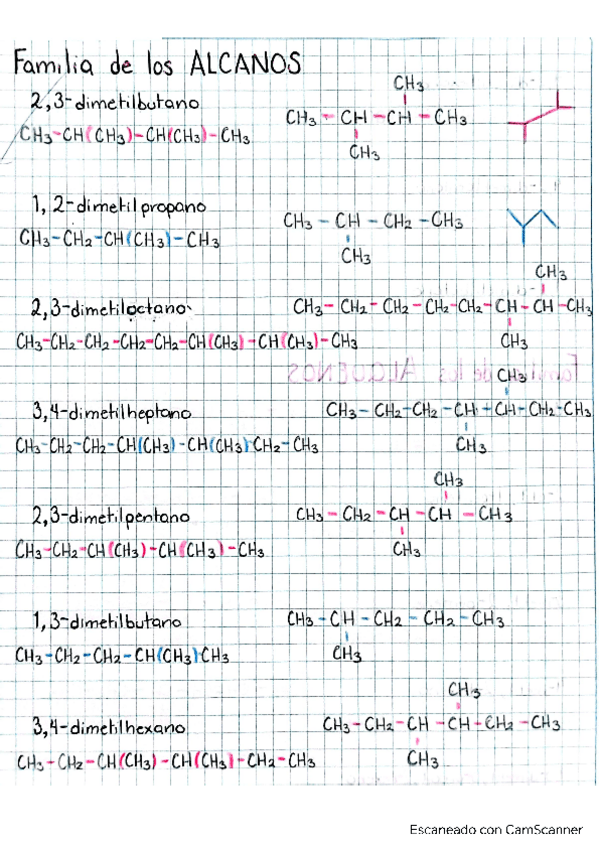 Familia de los ALCANOS
2,3-dimetilbutano
CH3-CH(CH3)-CH(CH3)-CH3
CH3
CH3 - CH - CH - CH3
CH3
1,2-dimetil propano
CH3-CH2-CH(CH3)-CH3
CH3 - CH - CH2 - CH3
CH3
2,3-dimetiloctano
CH3-CH2-CH2-CH2-CH2-CH(CH3)-CH(CH3)-CH3
CH3
CH3-CH2-CH2-CH2-CH2-CH-CH-CH3
CH3
3,4-dimetilheptano
CH3-CH2-CH2-CH(CH3)-CH(CH3)-CH2-CH3
CH3
CH3-CH2-CH2-CH-CH-CH2-CH3
CH3
2,3-dimetilpentano
CH3-CH2-CH(CH3)-CH(CH3)-CH3
CH3
CH3-CH2-CH-CH-CH3
CH3
1,3-dimetilbutano
CH3-CH2-CH2-CH(CH3)CH3
CH3-CH-CH2-CH2-CH3
CH3
3,4-dimetilhexano
CH3-CH2-CH(CH3)-CH(CH3)-CH2-CH3
CH3
CH3-CH2-CH-CH-CH2-CH3
CH3
Escaneado con CamScanner